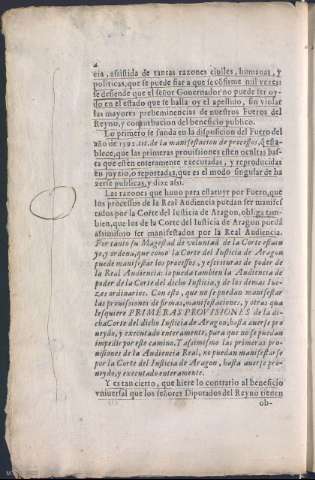 2
cia, assistida de tantas razones ciuiles, humanas, y
politicas, que se puede fiar a que se cõfirme mil vezes:
se defiende que el señor Governador no puede ser oy-
do en el estado que se halla oy el apellido, sin violar
las mayores preheminencias de nuestros Fueros del
Reyno, y conturbacion del beneficio publico.
Lo primero se funda en la disposicion del Fuero del
año de 1592. tit. de la manifestacion de processos, q̃ esta-
blece, que las primeras prouisiones esten ocultas has-
ta que estèn enteramente executadas, y reproducidas
en juyzio, o reportadas, que es el modo singular de ha
zerse publicas, y dize assi.
Las razones que huuo para estatuyr por Fuero, que
los processos de la Real Audiencia puedan ser manifes
tados por la Corte del Iusticia de Aragon, obligã tam-
bien, que los de la Corte del Iusticia de Aragon puedã
assimismo ser manifestados por la Real Audiencia.
Por tanto su Magestad de voluntad de la Corte estatu
ye, y ordena, que como la Corte del Iusticia de Aragon
puede manifestar los processos, y escrituras de poder de
la Real Audiencia: lo pueda tambien la Audiencia de
poder de la Corte del dicho Iusticia, y de los demas Iue-
zes ordinarios. Con esto, que no se puedan manifestar
las prouisiones de firmas, manifestaciones, y otras qua
lesquiere PRIMERAS PROVISIONES de la di-
cha Corte del dicho Iusticia de Aragon, hasta auerse pro
ueydo, y executado enteramente, para que no se puedan
impedir por este camino. Y assimismo las primeras pro-
uisiones de la Audiencia Real, no puedan manifestarse
por la Corte del Iusticia de Aragon, hasta auerse pro-
ueydo, y executado enteramente.
Y es tan cierto, que hiere lo contrario al beneficio
vniuersal que los señores Diputados del Reyno tienen
ob-